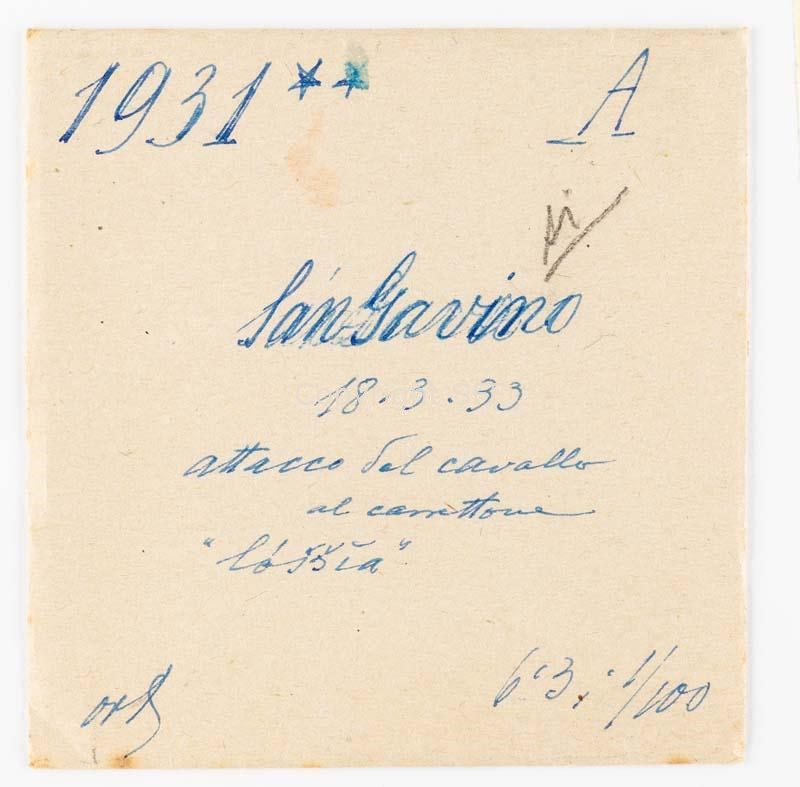 1931** A
San Gavino
18.3.33
attacco del cavallo
al carrettone
"lóššĭa"
6'3; 1/100